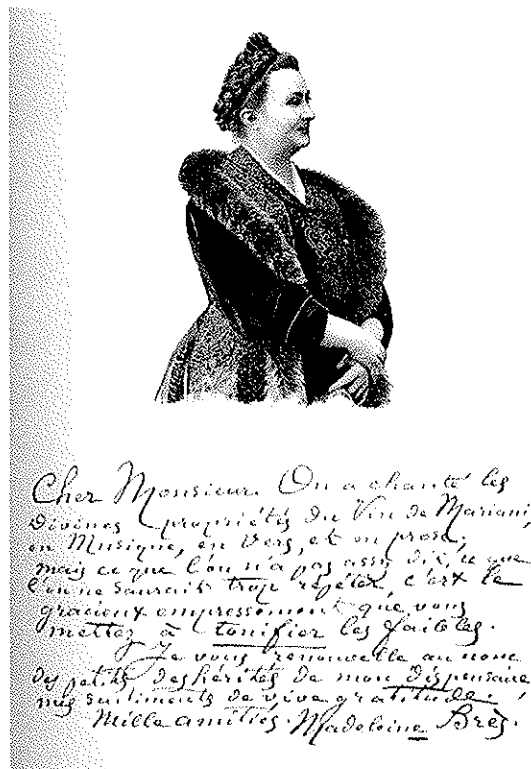 Cher Monsieur. On a chanté les
Divines propriétés du Vin de Mariani,
en Musique, en Vers, et en prose;
mais ce que l'on n'a pas assez dit, ce que
l'on ne saurait trop répéter, c'est le
gracieux empressement que vous
mettez à tonifier les faibles.
Je vous renouvelle au nom
des petits déshérités de mon dispensaire
mes sentiments de vive gratitude.
Mille amitiés. Madeleine Brès.